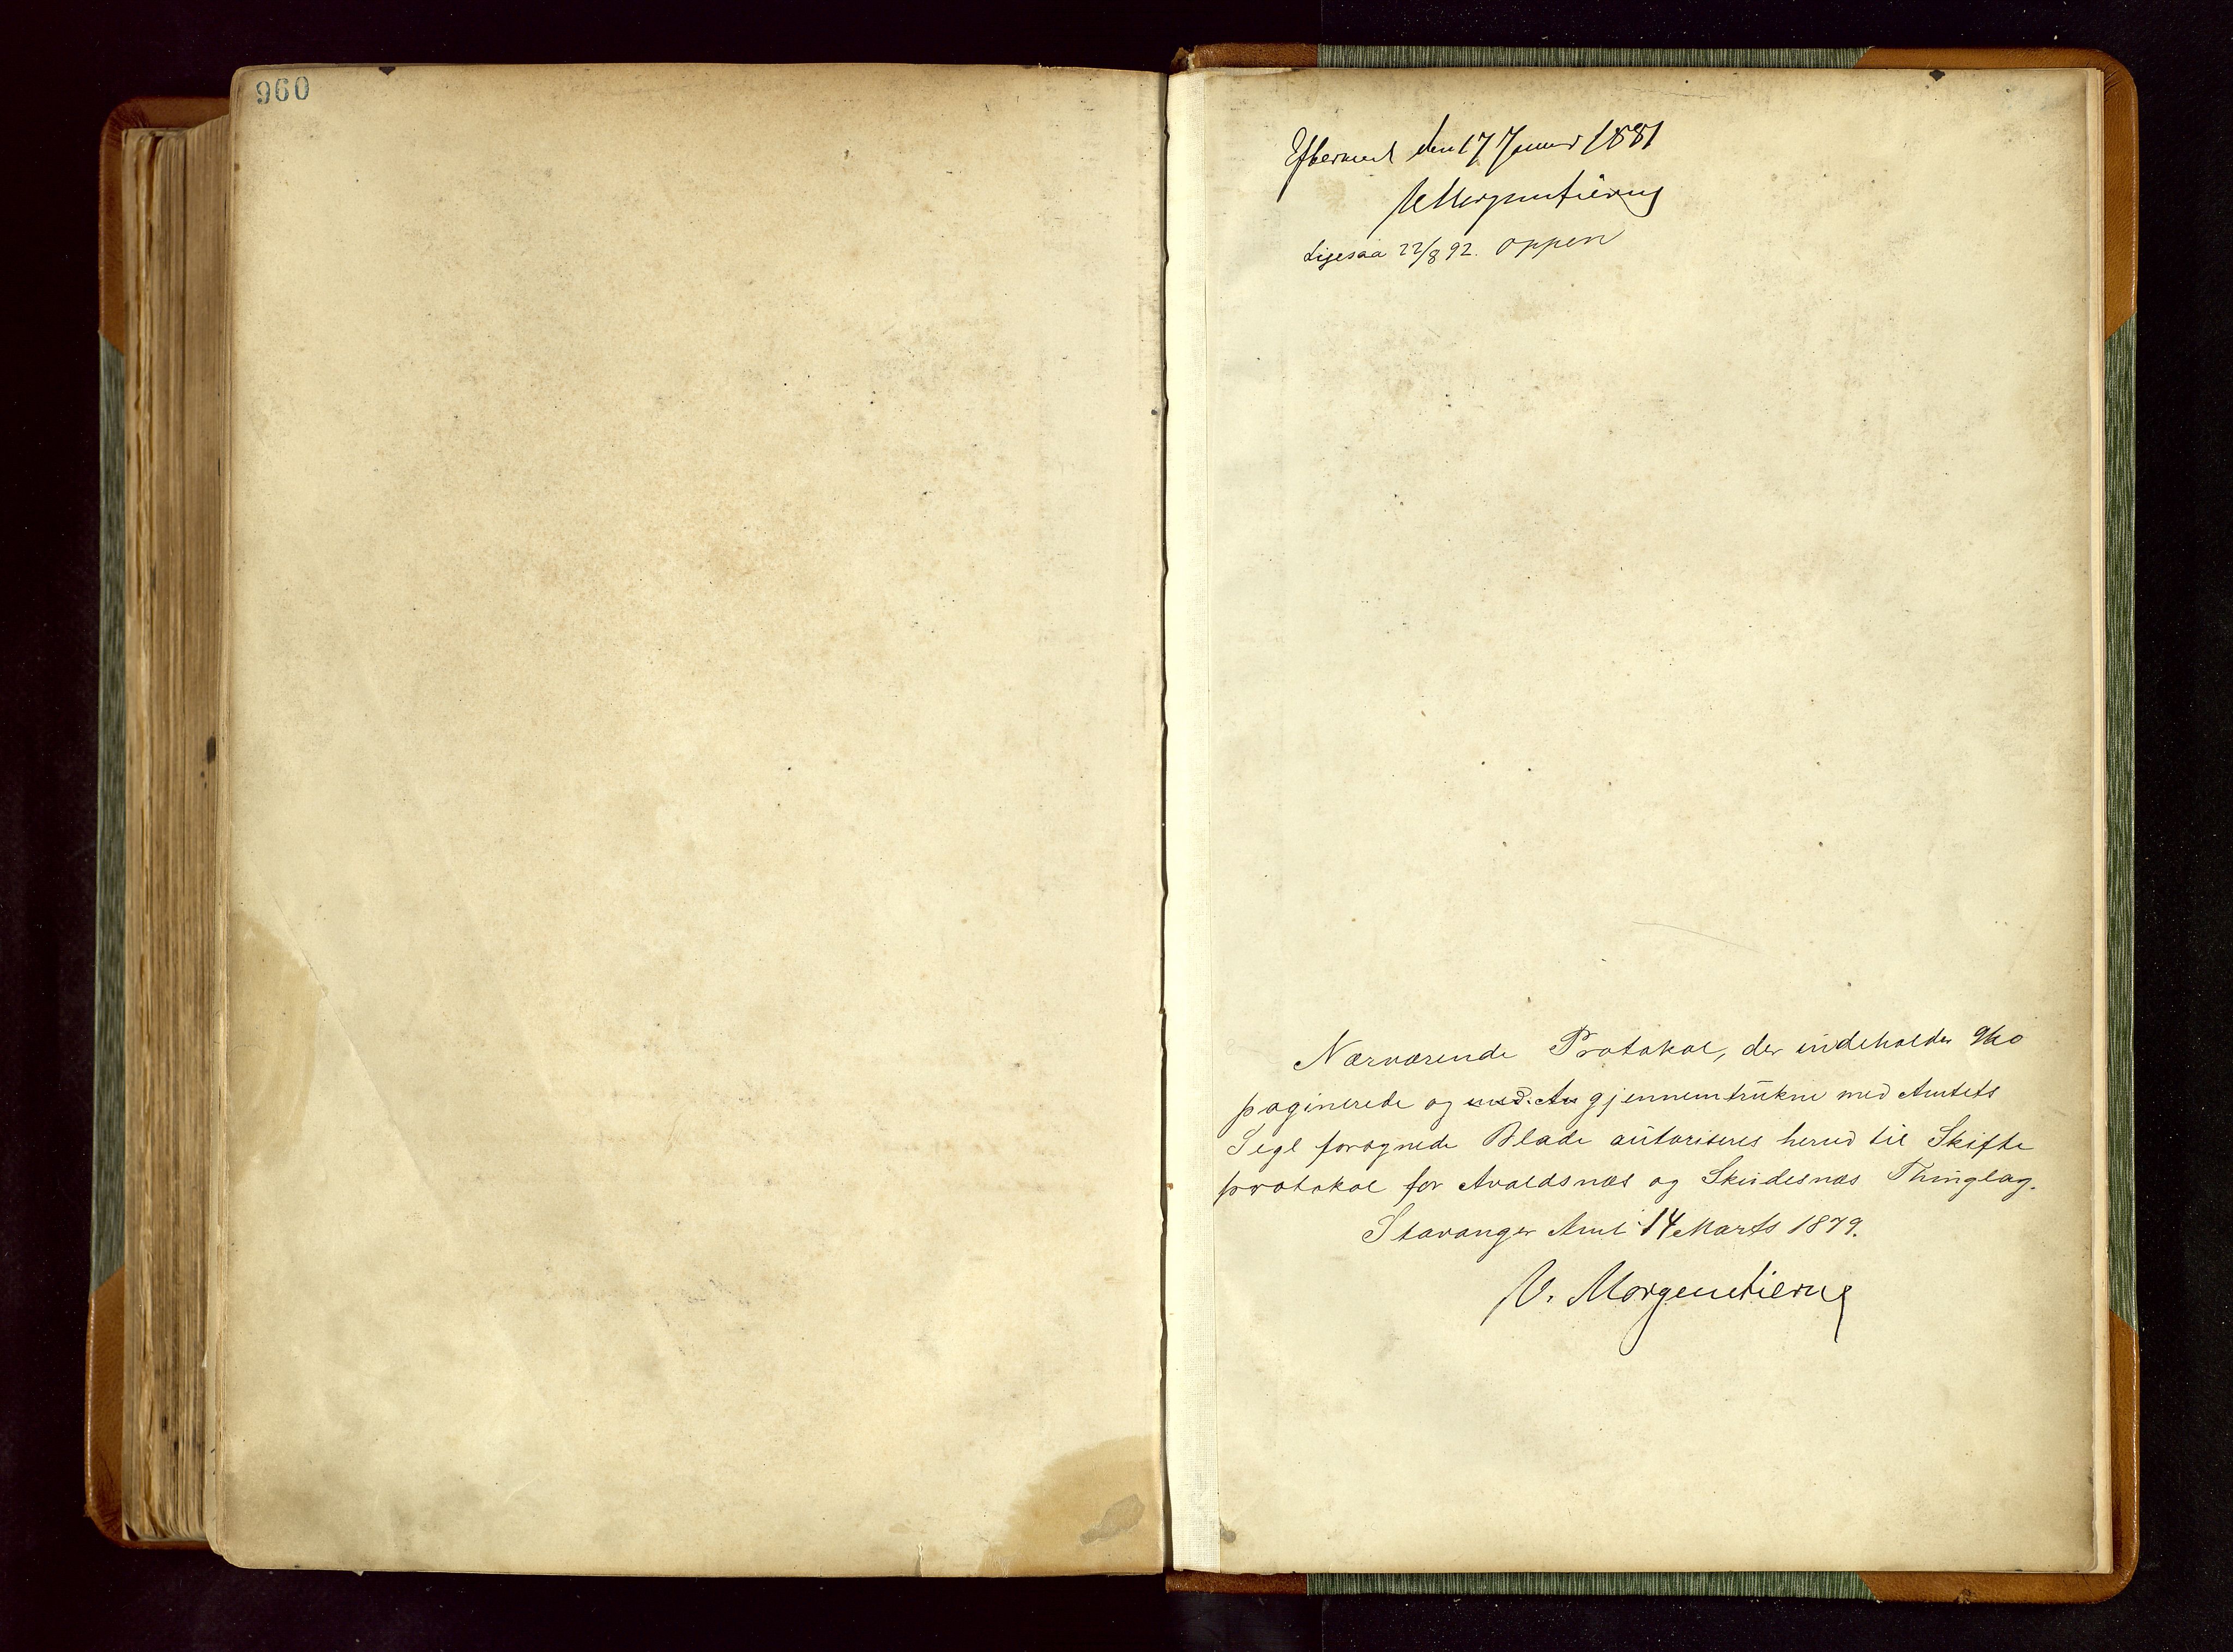 960
Efterseet den 17 Januar 1881
V Morgenstierne
Ligesaa 22/8 92. Oppen
Nærværende Protokol, der indeholder 960
paginerede og med. Am gjennemtrukne med Amtets
Segl forsynede Blade autoriseres herved til Skifte
protokol for Avaldsnæs og Skudesnæs Thinglag.
Stavanger Amt 14 Marts 1879.
V. Morgenstierne